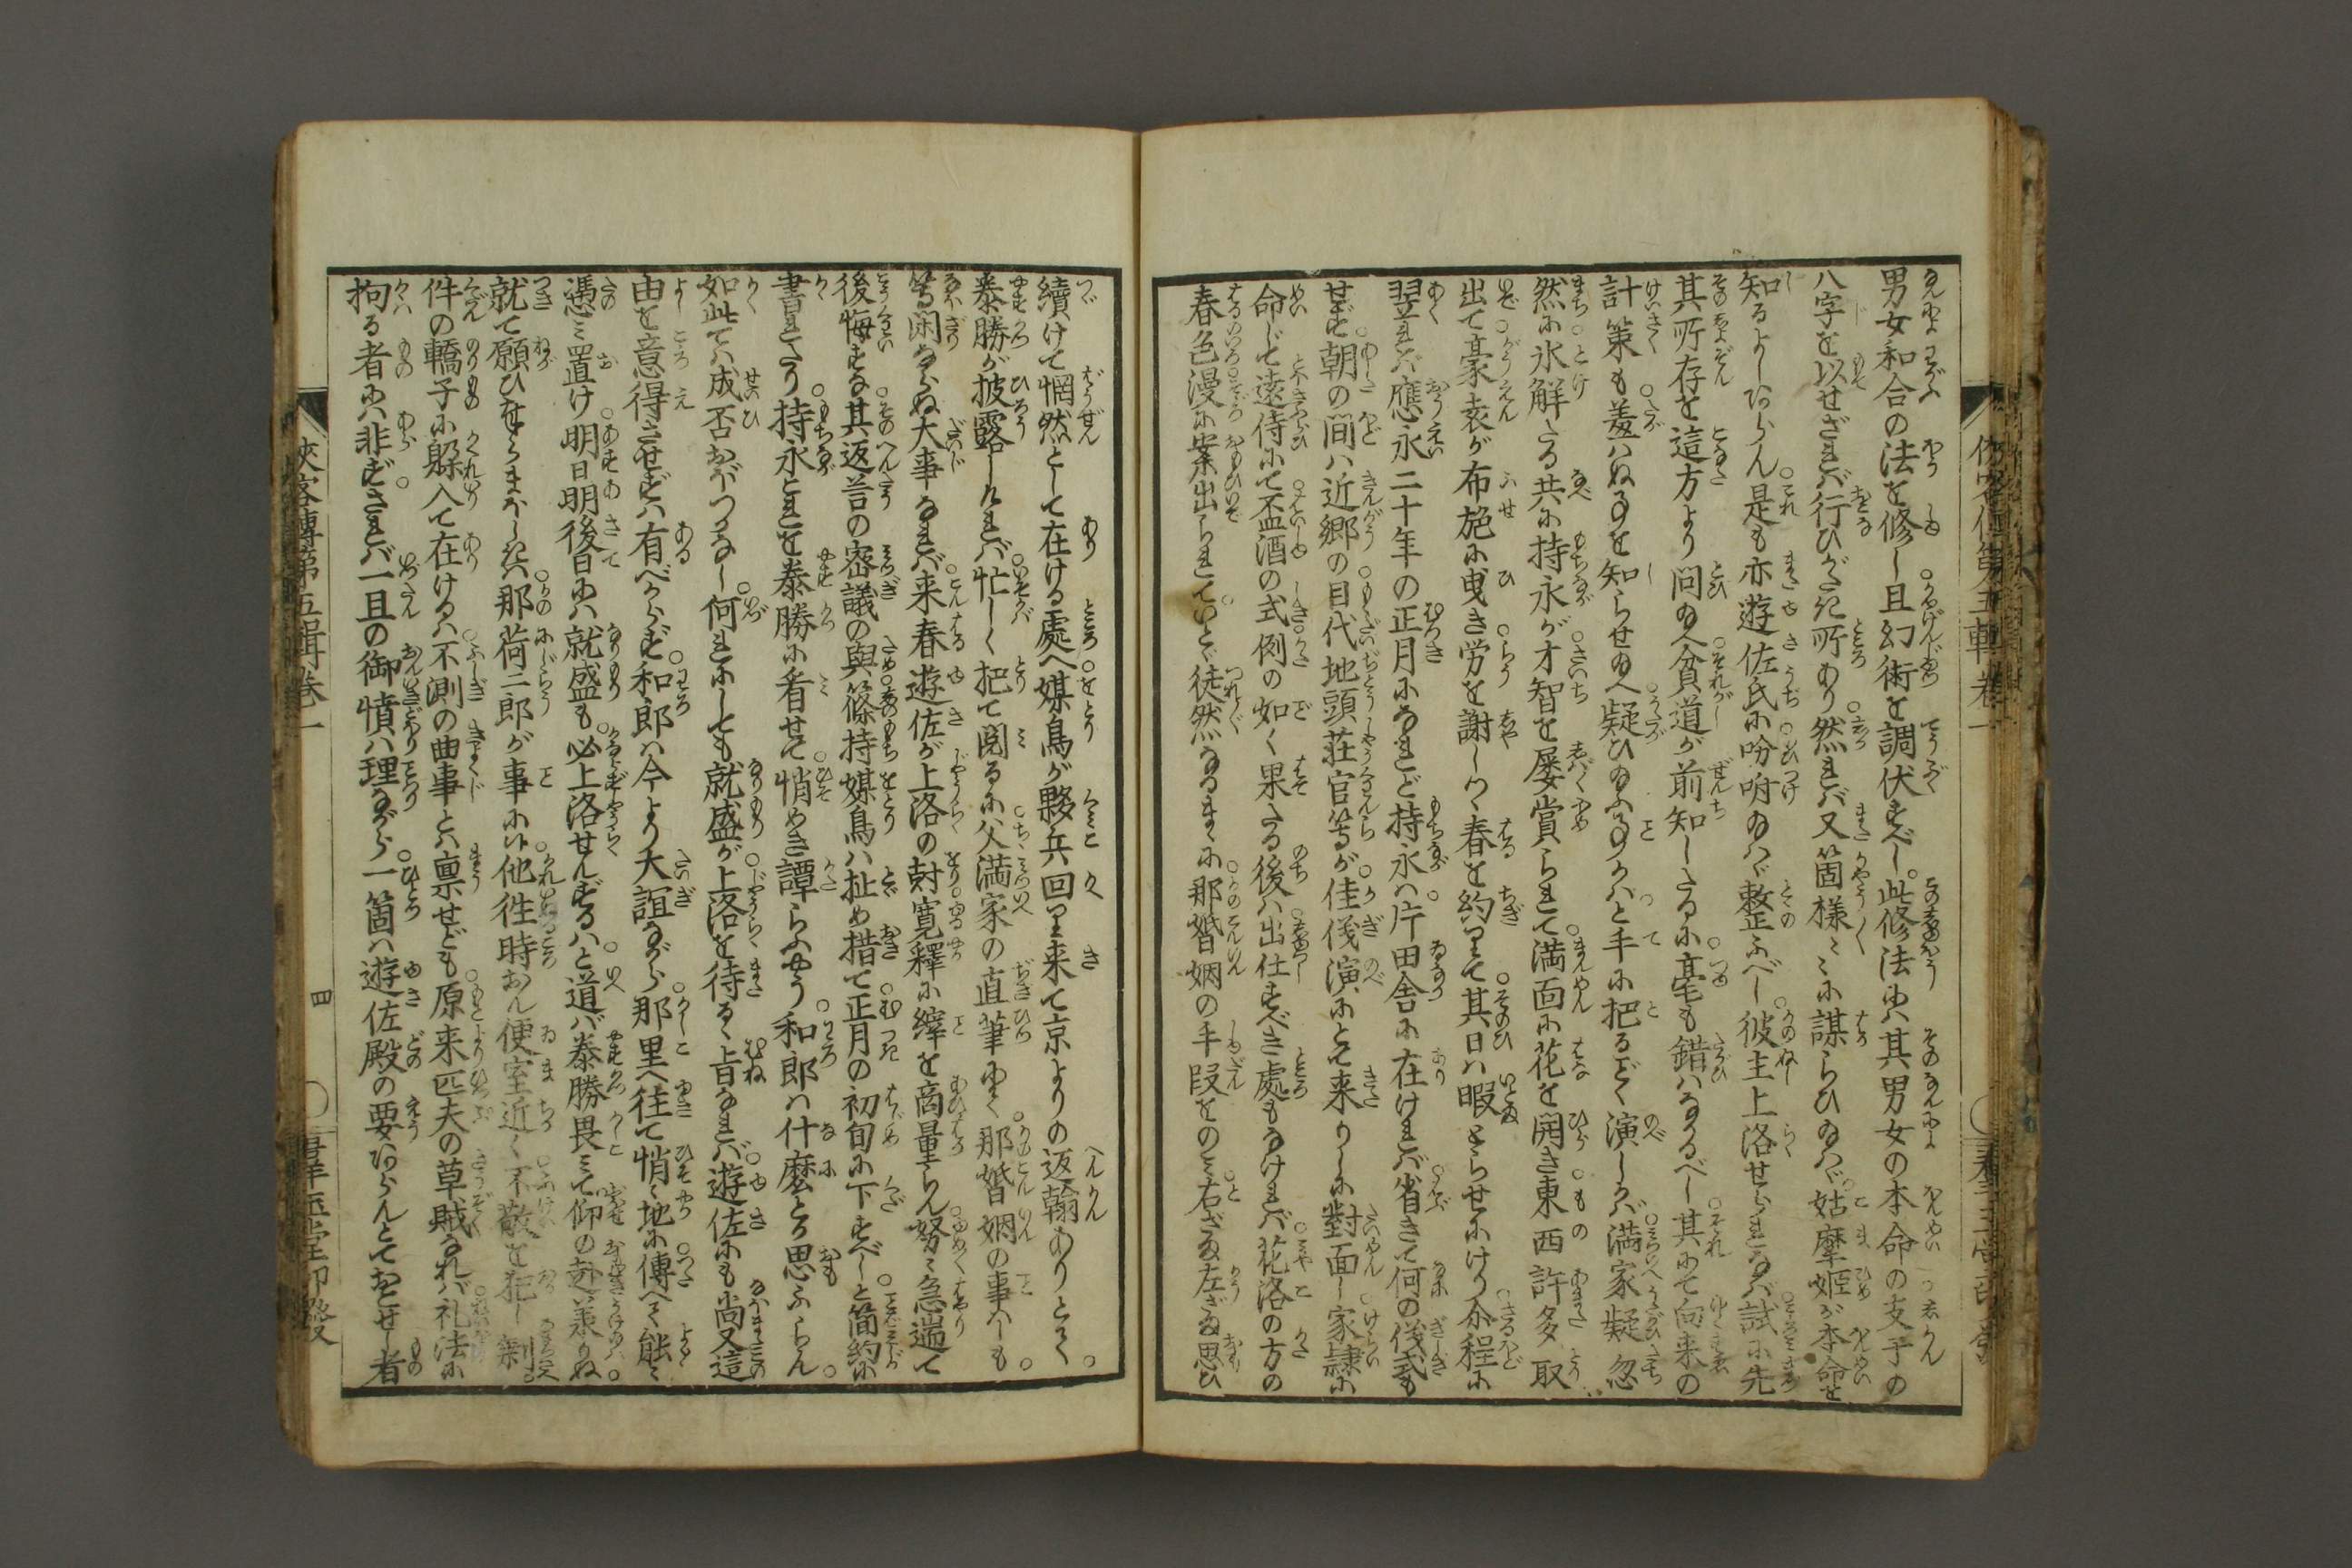 男女和合の法を修し且幻術を調伏すべし。此修法には其男女の本命の支干の
八字を以せざれば行ひがたき所あり然れば又箇様々々に謀らひ給へば姑摩姫が本命を
知るよしあらん是も亦遊佐氏に吩咐給はゞ整ふべし彼主上洛せられなば試に先
其所存を這方より問給へ貧道が前知したるに毫も錯はなるべし其にて向来の
計策も差はぬ事を知らせ給へ疑ひ給ふ事かはと手に把るごとく演しかば満家疑忽
然に氷解たる共に持永が才智を屡賞られて満面に花を開き東西許多取
出て豪袁が布施に曳き労を謝しつゝ春を約りて其日は暇とらせにけり余程に
翌れば應永二十年の正月になれど持永は片田舎に在ければ省きて何の儀式も
せず朝の間は近郷の目代地頭荘官等が佳儀演にとて来りしに對面し家隷に
命じて遠侍にて盃酒の式例の如く果たる後は出仕すべき處もなければ花洛の方の
春色漫に案出られていとゞ徒然なるまゝに那婚姻の手段をのミ右ざま左ざま思ひ
續けて惘然として在ける處へ媒鳥が夥兵回り来て京よりの返翰ありとて
泰勝が披露しければ忙しく把て閲るに父満家の直筆にて那婚姻の事はしも
等閑ならぬ大事なれば来春遊佐が上洛の討寛釋に縡を商量らん努々急遄て
後悔すな其返荅の密議の與篠持媒鳥は扯め措て正月の初旬に下すべしと簡約に
書れたり持永これを泰勝に看せて悄めき譚らふやう和郎は什麼とか思ふらん
如此ては成否おぼつかなし何れにしても就盛が上洛を待るゝ旨なれば遊佐にも尚又這
由を意得させずは有べからず和郎は今より大誼ながら那里へ往て悄地に傳へて能々
憑ミ置け明日明後日には就盛も必上洛せんずるはと道ば泰勝畏ミて仰の趣羕りぬ
就て願ひ奉らまほしきは那荷二郎が事に候他徃時おん便室近く不敬を犯し
件の轎子に躱入て在けるは不測の曲事とは禀せども原来匹夫の草賊なれば礼法に
拘る者には非ずされば一旦の御憤は理ながら一箇は遊佐殿の要あらんとておこせし者
侠客傳第五輯巻一
四
群玉堂印發